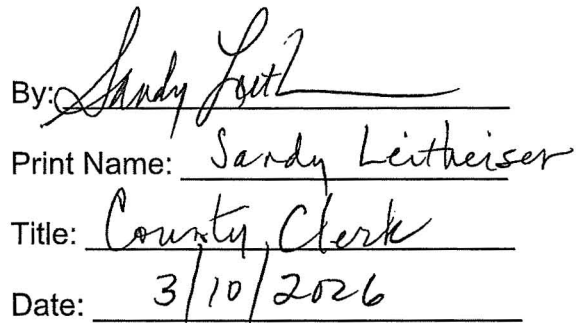 By: Sandy Leith
Print Name: Sandy Leitheiser
Title: County Clerk
Date: 3/10/2026